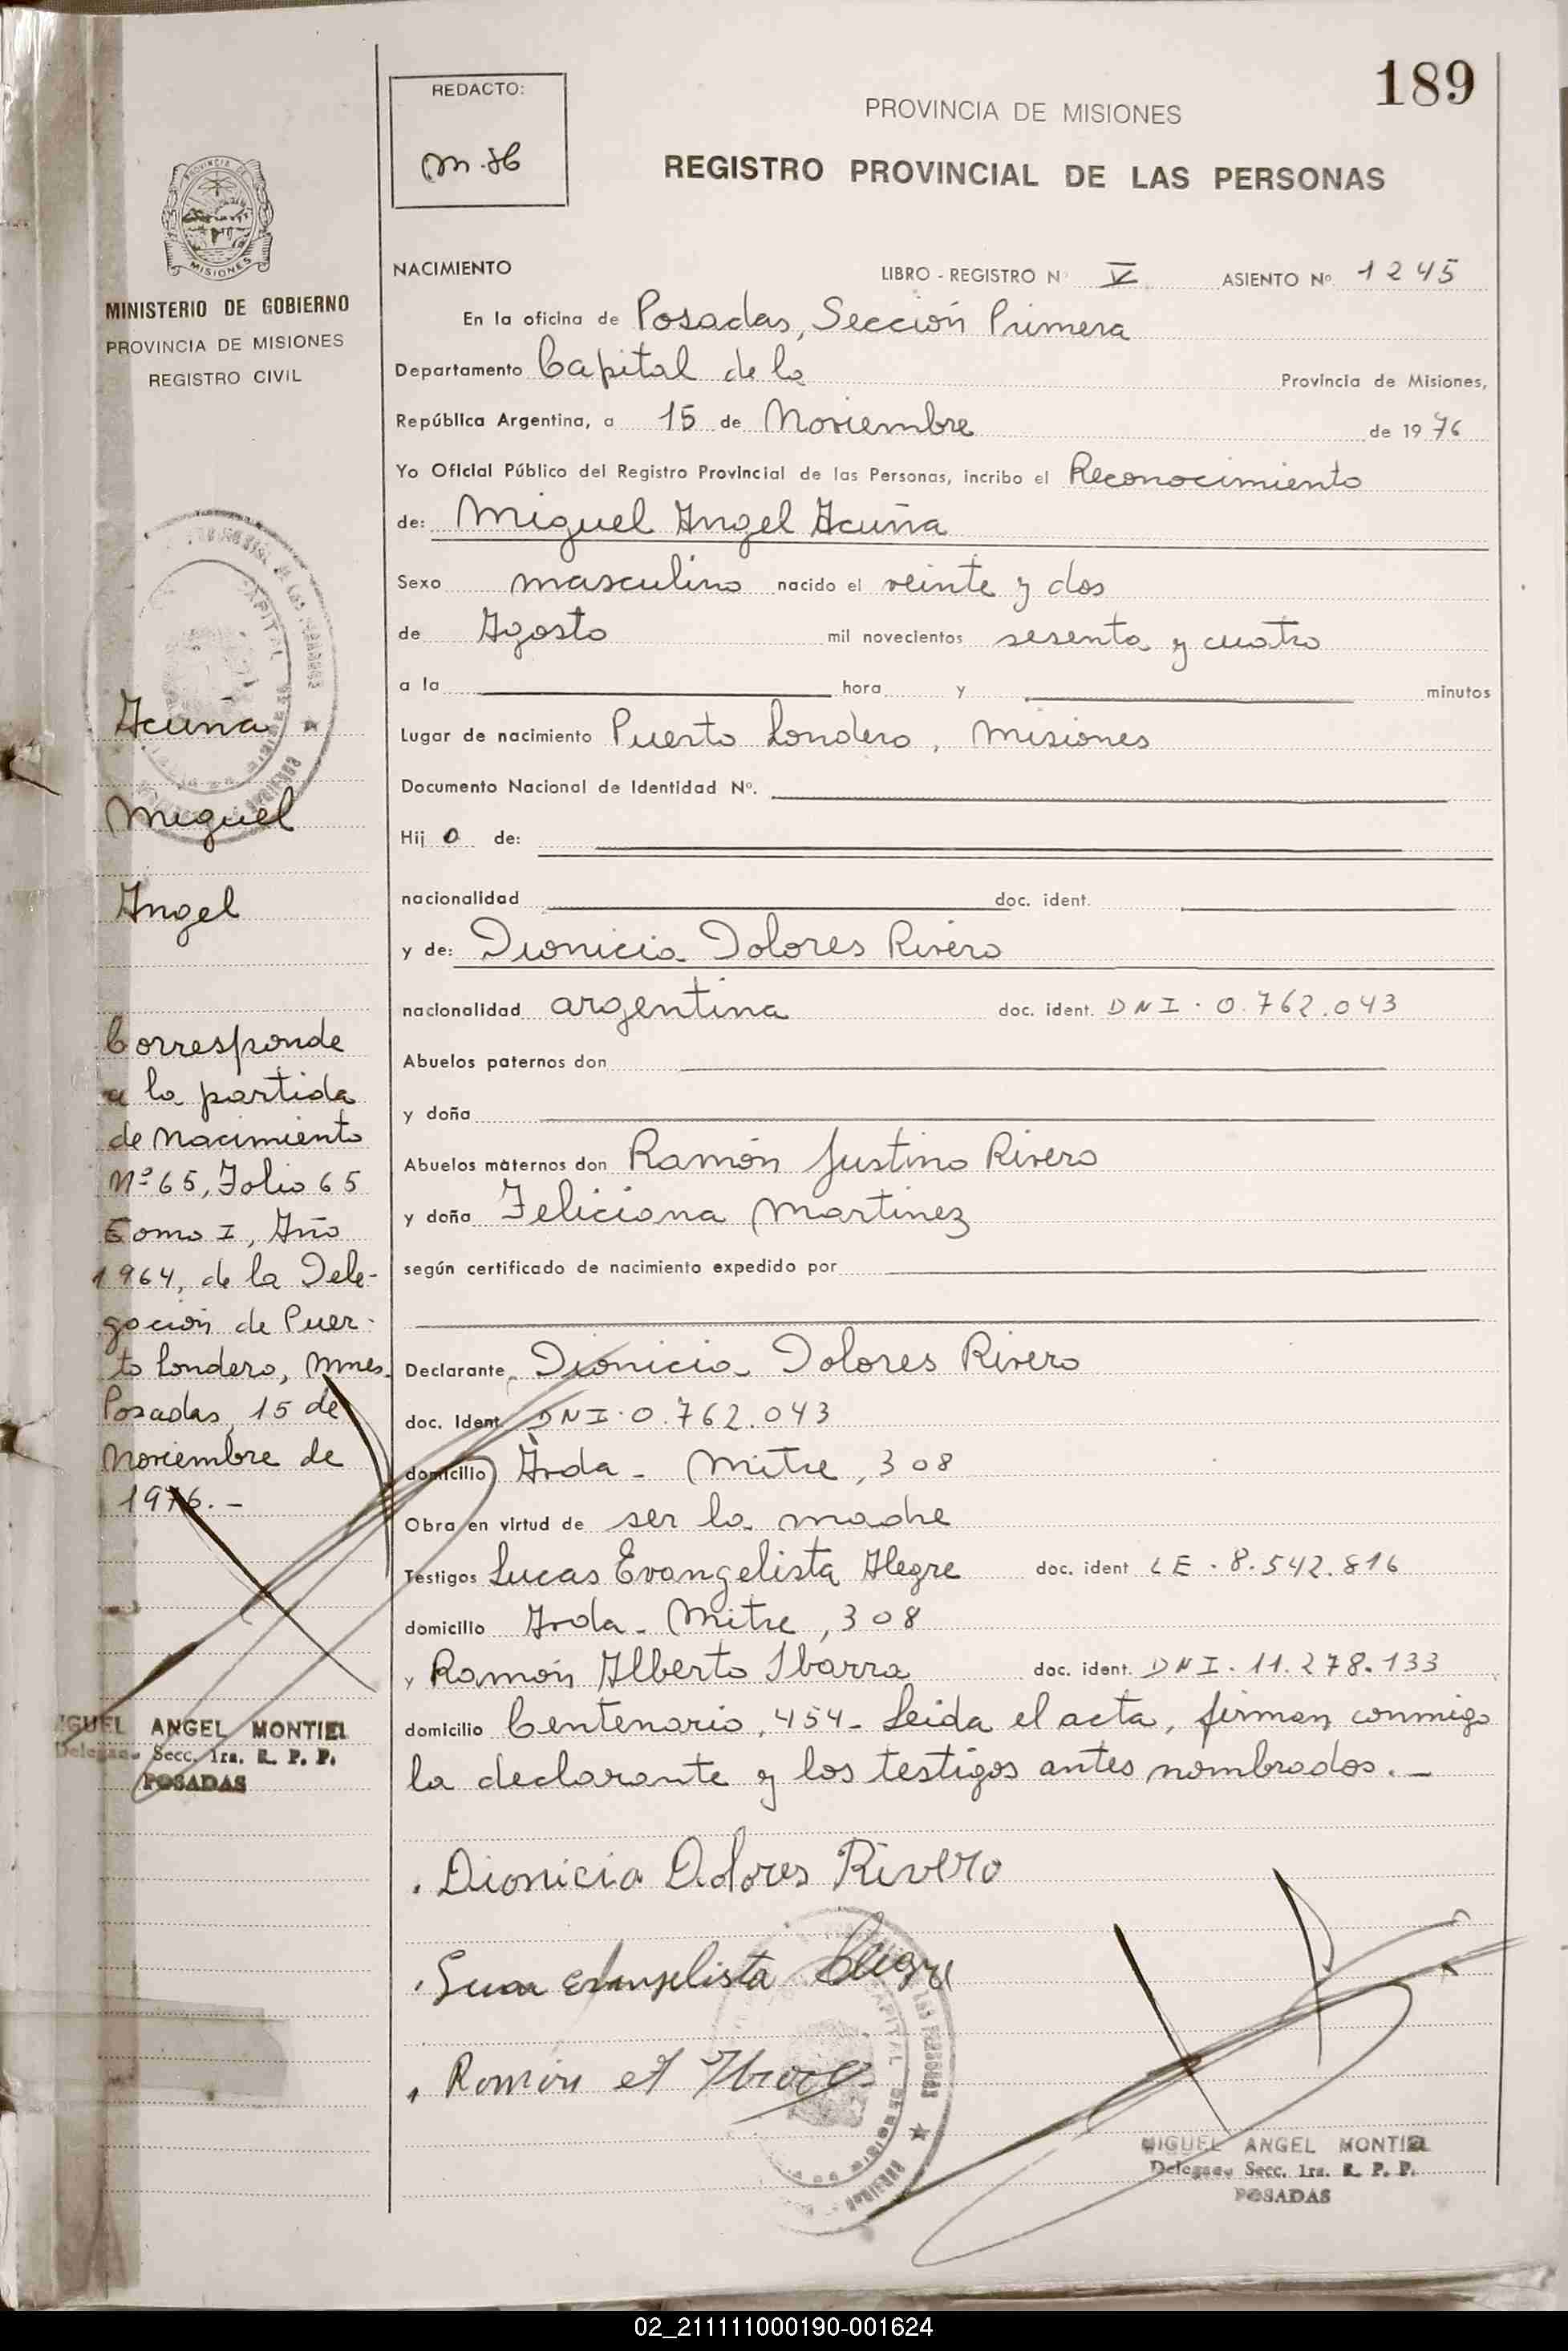 189
REDACTO:
PROVINCIA DE MISIONES
REGISTRO PROVINCIAL DE LAS PERSONAS
MISIONES
MINISTERIO DE GOBIERNO
PROVINCIA DE MISIONES
REGISTRO CIVIL
NACIMIENTO LIBRO - REGISTRO Nº V ASIENTO Nº 1245
En la oficina de Posadas, Sección Primera
Departamento Capital de la Provincia de Misiones,
República Argentina, a 15 de Noviembre de 1976
Yo Oficial Público del Registro Provincial de las Personas, incribo el Reconocimiento
de: Miguel Angel Acuña
Sexo masculino nacido el veinte y dos
de Agosto mil novecientos sesenta y cuatro
a la hora y minutos
Lugar de nacimiento Puerto Londero, Misiones
Documento Nacional de Identidad Nº.
Hij o de:
nacionalidad doc. ident.
y de: Dionicia Dolores Rivero
nacionalidad argentina doc. ident. DNI. 0.762.043
Abuelos paternos don
y doña
Abuelos maternos don Ramón Justino Rivero
y doña Feliciana Martinez
según certificado de nacimiento expedido por
Declarante Dionicia Dolores Rivero
doc. Ident. DNI. 0.762.043
domicilio Avda- Mitre, 308
Obra en virtud de ser la madre
Testigos Lucas Evangelista Alegre doc. ident LE. 8.542.816
domicilio Avda- Mitre, 308
y Ramón Alberto Ibarra doc. ident. DNI. 11.278.133
domicilio Centenario, 454- Leida el acta, firman conmigo
la declarante y los testigos antes nombrados.-
Dionicia Dolores Rivero
MIGUEL ANGEL MONTIEL
Delegado Secc. 1ra. R. P. P.
POSADAS
Acuña
Miguel
Angel
Corresponde
a la partida
de Nacimiento
Nº 65, Folio 65
Tomo I, Año
1964, de la Dele-
gación de Puer-
to Londero, Mnes.
Posadas, 15 de
Noviembre de
1976.-
IGUEL ANGEL MONTIEL
Delegado Secc. 1ra. R. P. P.
POSADAS
02_211111000190-001624